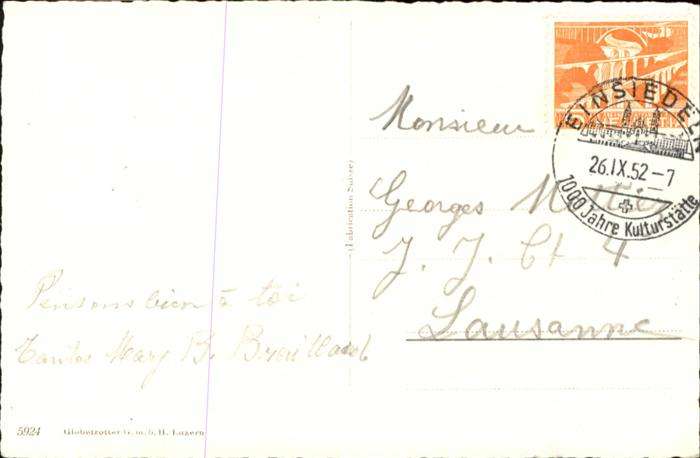 Pensons bien à toi
Tantes Mary B. Brouillard
5924 Globetrotter G. m. b. H. Luzern
(Fabrication Suisse)
EINSIEDELN
26.IX.52-7
1000 Jahre Kulturstätte
5
HELVETIA
Monsieur
Georges
J. J. Ct 4
Lausanne